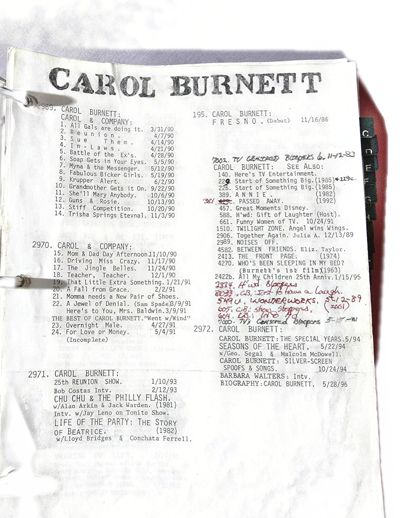 CAROL BURNETT
2969. CAROL BURNETT:
CAROL & COMPANY:
1. All Gals are doing it. 3/31/90
2. Reunion. 4/7/90
3. Them. 4/14/90
4. In-Laws. 4/21/90
5. Battle of the Ex's. 4/28/90
6. Soap Gets in Your Eyes. 5/5/90
7. Myna & the Messenger. 5/12/90
8. Fabulous Bicker Girls. 5/19/90
9. Krupper Alert. 6/2/90
10. Grandmother Gets it On. 9/22/90
11. She'll Mary Anybody. 10/6/90
12. Guns & Rosie. 10/13/90
13. Stiff Competition. 10/20/90
14. Trisha Springs Eternal. 11/3/90
2970. CAROL & COMPANY:
15. Mom & Dad Day Afternoon. 11/10/90
16. Driving Miss Crazy. 11/17/90
17. The Jingle Belles. 11/24/90
18. Teacher, Teacher. 12/1/90
19. That Little Extra Something. 1/21/91
20. A Fall from Grace. 2/2/91
21. Momma needs a New Pair of Shoes.
22. A Jewel of Denial. (Sam Spade) 2/9/91
Here's to You, Mrs. Baldwin. 3/9/91
THE BEST OF CAROL BURNETT. "Went w/Wind"
23. Overnight Male. 4/27/91
24. For Love or Money. 5/4/91
(Incomplete)
2971. CAROL BURNETT:
25th REUNION SHOW. 1/10/93
Bob Costas Intv. 2/12/93
CHU CHU & THE PHILLY FLASH.
w/Alan Arkin & Jack Warden. (1981)
Intv. w/Jay Leno on Tonite Show.
LIFE OF THE PARTY: THE STORY
OF BEATRICE. (1982)
w/Lloyd Bridges & Conchata Ferrell.
195. CAROL BURNETT:
FRESNO. (Debut) 11/16/86
2002. TV CENSORED BLOOPERS 6. 11-12-83
CAROL BURNETT: SEE ALSO:
140. Here's TV Entertainment.
Start of Something Big. (1985)
225. Start of Something Big. (1985)
389. ANNIE. (1982)
PASSED AWAY (1992)
457. Great Moments Disney.
588. H'wd: Gift of Laughter (Host).
661. Funny Women of TV. 10/24/91
1510. TWILIGHT ZONE. Angel wins Wings.
2906. Together Again. Julia A. 12/13/89
2989. NOISES OFF.
4582. BETWEEN FRIENDS. Eliz. Taylor.
2413. THE FRONT PAGE. (1974)
4270. WHO'S BEEN SLEEPING IN MY BED?
(Burnett's 1st film)(1963)
2422b. All My Children 25th Anniv. 1/15/95
H'wd Bloopers
to have a Laugh.
WONDERWORKS. 5-12-89
CB: Show Stoppers. (2001)
TV Censored Bloopers
2972. CAROL BURNETT:
CAROL BURNETT: THE SPECIAL YEARS. 5/94
SEASONS OF THE HEART. 5/22/94
w/Geo. Segal & Malcolm McDowell.
CAROL BURNETT: SILVER-SCREEN
SPOOFS & SONGS. 10/24/94
BARBARA WALTERS: Intv.
BIOGRAPHY: CAROL BURNETT, 5/28/96
C
D
E
F
G